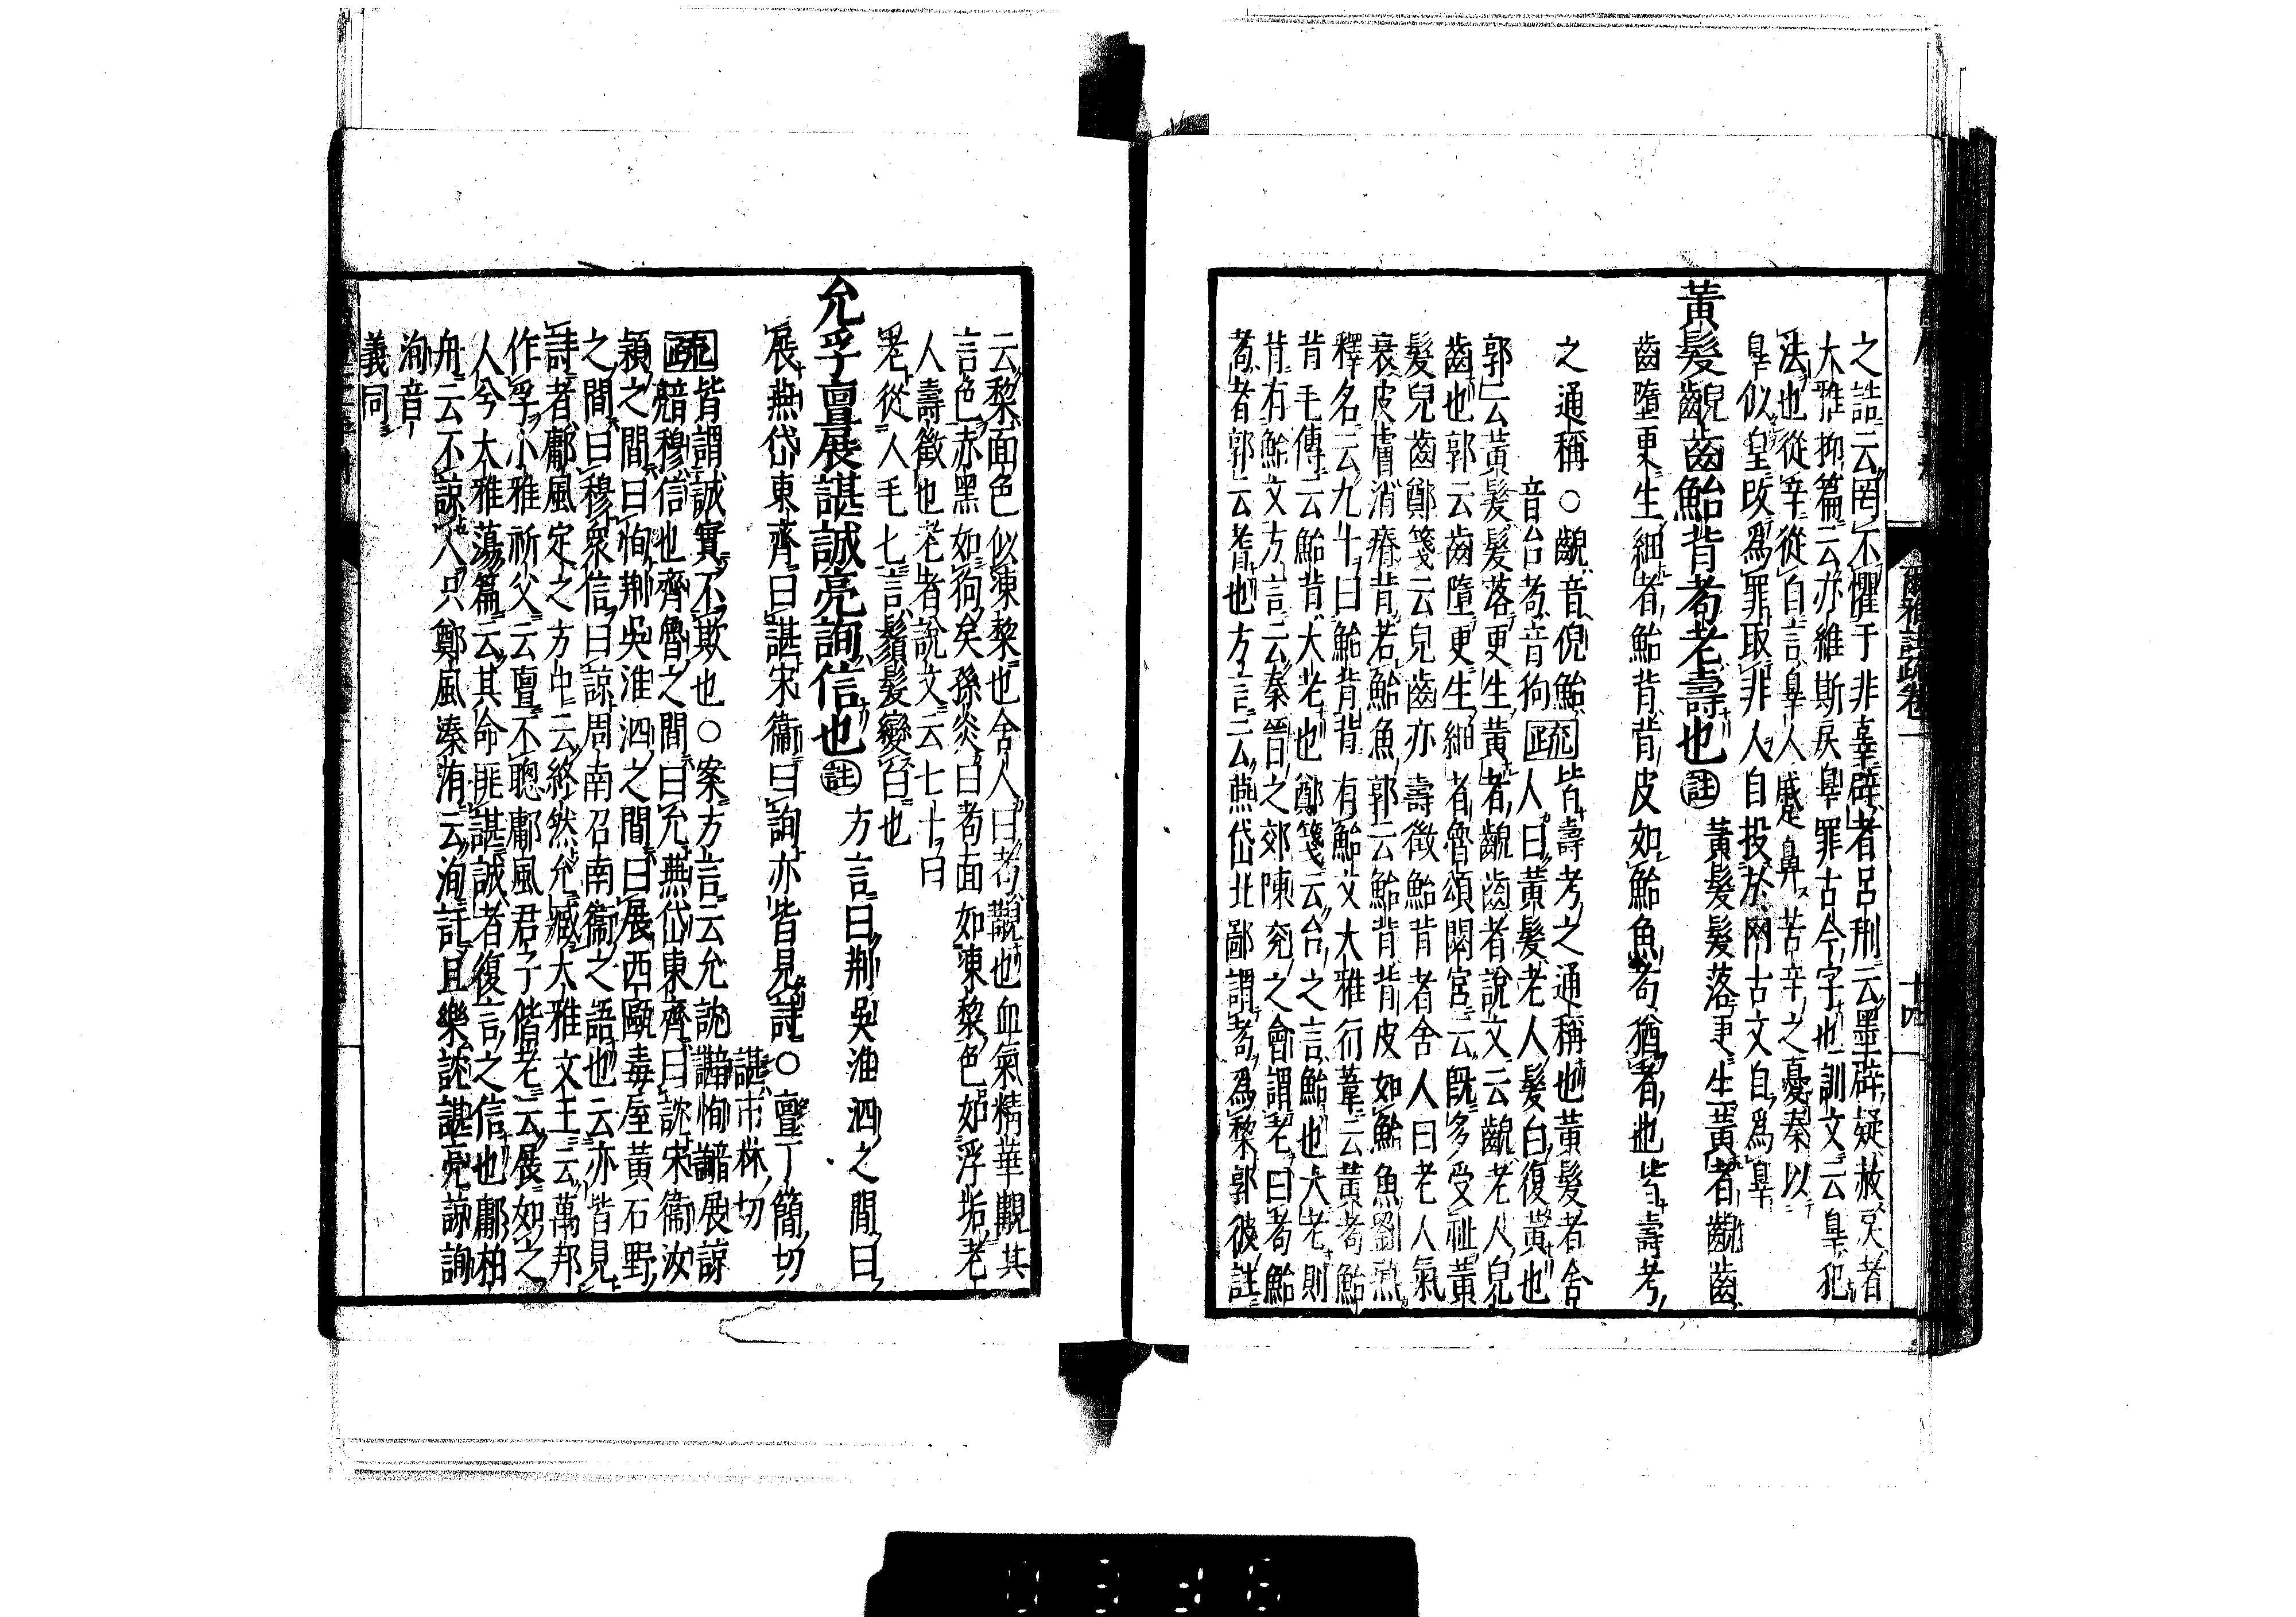 之誥云罔不懼于非辜辟者呂刑云墨辟疑赦戾者
大雅抑篇云亦維斯戾辠罪古今字也訓文云辠犯
法也從辛從自言辠人蹙鼻苦辛之憂秦以
辠似皇改爲罪取非人自投於网古文自爲辠
黃髮齯齒鮐背耇老壽也註黃髮髮落更生黃者齯齒
齒墮更生細者鮐背背皮如鮐魚耇猶耆也皆壽考
之通稱○齯音倪鮐
音台耇音狗疏皆壽考之通稱也黃髮者舍
人曰黃髮老人髮白復黃也
郭云黃髮髮落更生黃者齯齒者說文云齯老人兒
齒也郭云齒墮更生細者魯頌閟宮云旣多受祉黃
髮兒齒鄭箋云兒齒亦壽徵鮐背者舍人曰老人氣
衰皮膚消瘠背若鮐魚郭云鮐背背皮如鮐魚劉熙
釋名云九十曰鮐背背有鮐文大雅行葦云黃耇鮐
背毛傳云鮐背大老也鄭箋云台之言鮐也大老則
背有鮐文方言云秦晉之郊陳兗之會謂老曰耇鮐
耇者郭云耆也方言云燕岱北鄙謂耇爲黎郭彼註
爾雅註疏卷一
十四
云黎面色似凍黎也舍人曰耇覯也血氣精華覯其
言色赤黑如狗矣孫炎曰耇面如凍黎色如浮垢老
人壽徵也老者說文云七十曰
老從人毛七言鬚髮變白也
允孚亶展諶誠亮詢信也註方言曰荆吳淮泗之間曰
展燕岱東齊曰諶宋衞曰詢亦皆見詩○亶丁簡切
諶市林切
疏皆謂誠實不欺也○案方言云允訦諶恂諳展諒
穆信也齊魯之間曰允燕岱東齊曰訦宋衞汝
潁之間曰恂荆吳淮泗之間曰展西甌毒屋黃石野
之間曰穆衆信曰諒周南召南衞之語也云亦皆見
詩者鄘風定之方中云終然允臧大雅文王云萬邦
作孚小雅祈父云亶不聰鄘風君子偕老云展如之
人兮大雅蕩篇云其命匪諶誠者復言之信也鄘柏
舟云不諒人只鄭風溱洧云洵訏且樂訦諶亮諒詢
洵音
義同